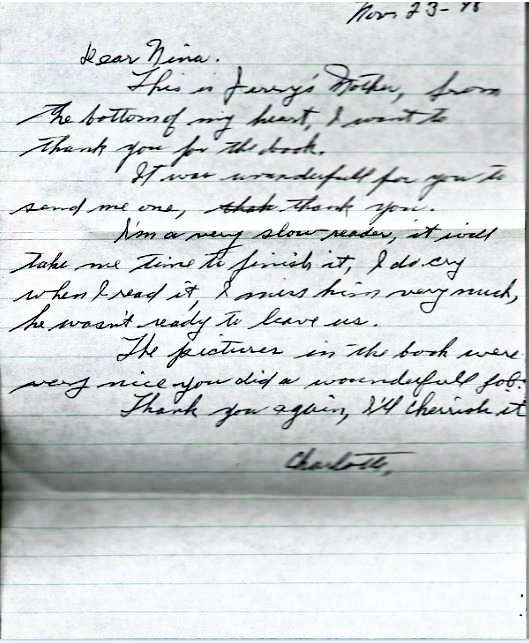 Nov. 23-98
Dear Nina.
This is Jerry's Mother, from
the bottom of my heart, I want to
thank you for the book.
It was wounderfull for you to
send me one, thank you.
I'm a very slow reader, it will
take me time to finish it, I do cry
when I read it, I miss him very much,
he wasn't ready to leave us.
The pictures in the book were
very nice you did a wounderfull job.
Thank you again, I'll cherrish it
Charlotte,